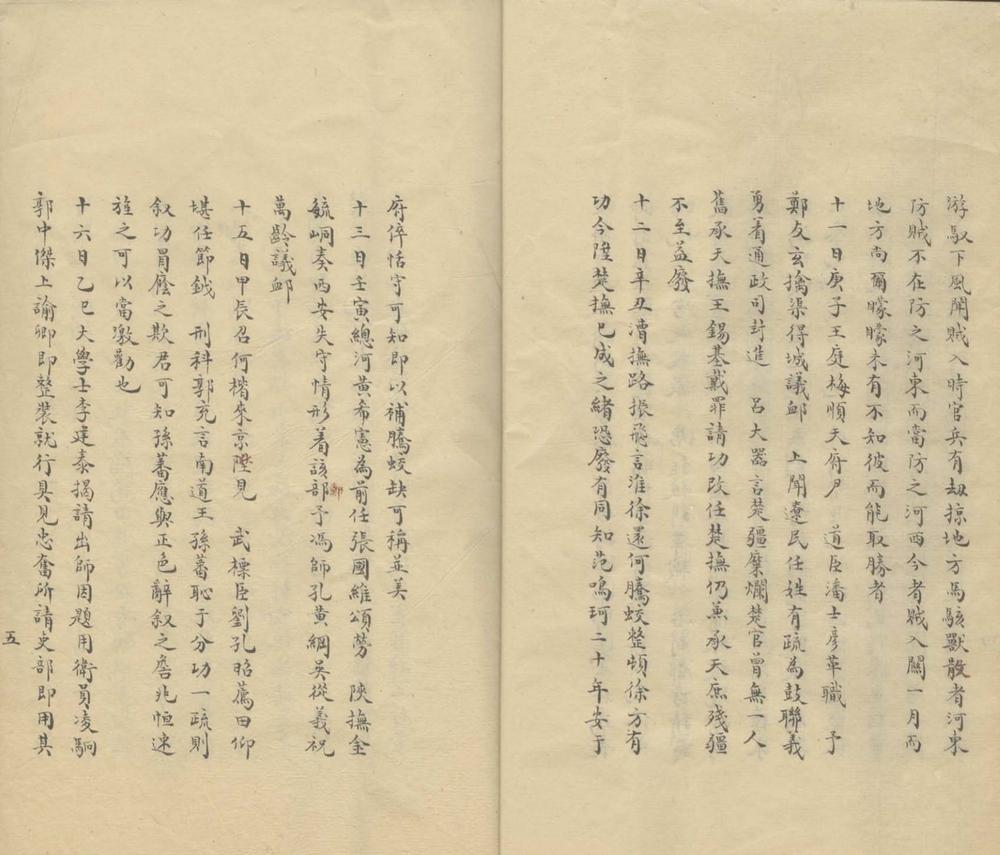 游馭下風聞賊入時官兵有劫掠地方馬駭獸散者河東
防賊不在防之河東而當防之河西今者賊入關一月而
地方尚爾矇矇未有不知彼而能取勝者
十一日庚子王庭梅順天府尹　道臣潘士彥革職　予
鄭友玄擒渠得城議卹　上聞遼民任姓有疏為鼓聯義
勇着通政司封進　呂大器言楚疆糜爛楚官曾無一人
舊承天撫王錫基戴罪請功改任楚撫仍兼承天庶殘疆
不至益廢
十二日辛丑漕撫路振飛言淮徐還何騰蛟整頓徐方有
功今陞楚撫已成之緒恐廢有同知范鳴珂二十年安于
府倅恬守可知即以補騰蛟缺可稱並美
十三日壬寅總河黃希憲為前任張國維頌勞　陝撫金
毓峒奏西安失守情形着該部予馮師孔黃綱吳從義祝
萬齡議卹
十五日甲長召何楷來京陞見　武標臣劉孔昭薦田仰
堪任節鉞　刑科郭充言南道王孫蕃恥于分功一疏則
叙功冐廕之欺君可知孫蕃應與正色辭叙之詹兆恒速
旌之可以當激勸也
十六日乙巳大學士李建泰揭請出師因題用衛員凌駉
郭中傑上諭卿即整裝就行具見忠奮所請吏部即用其
五